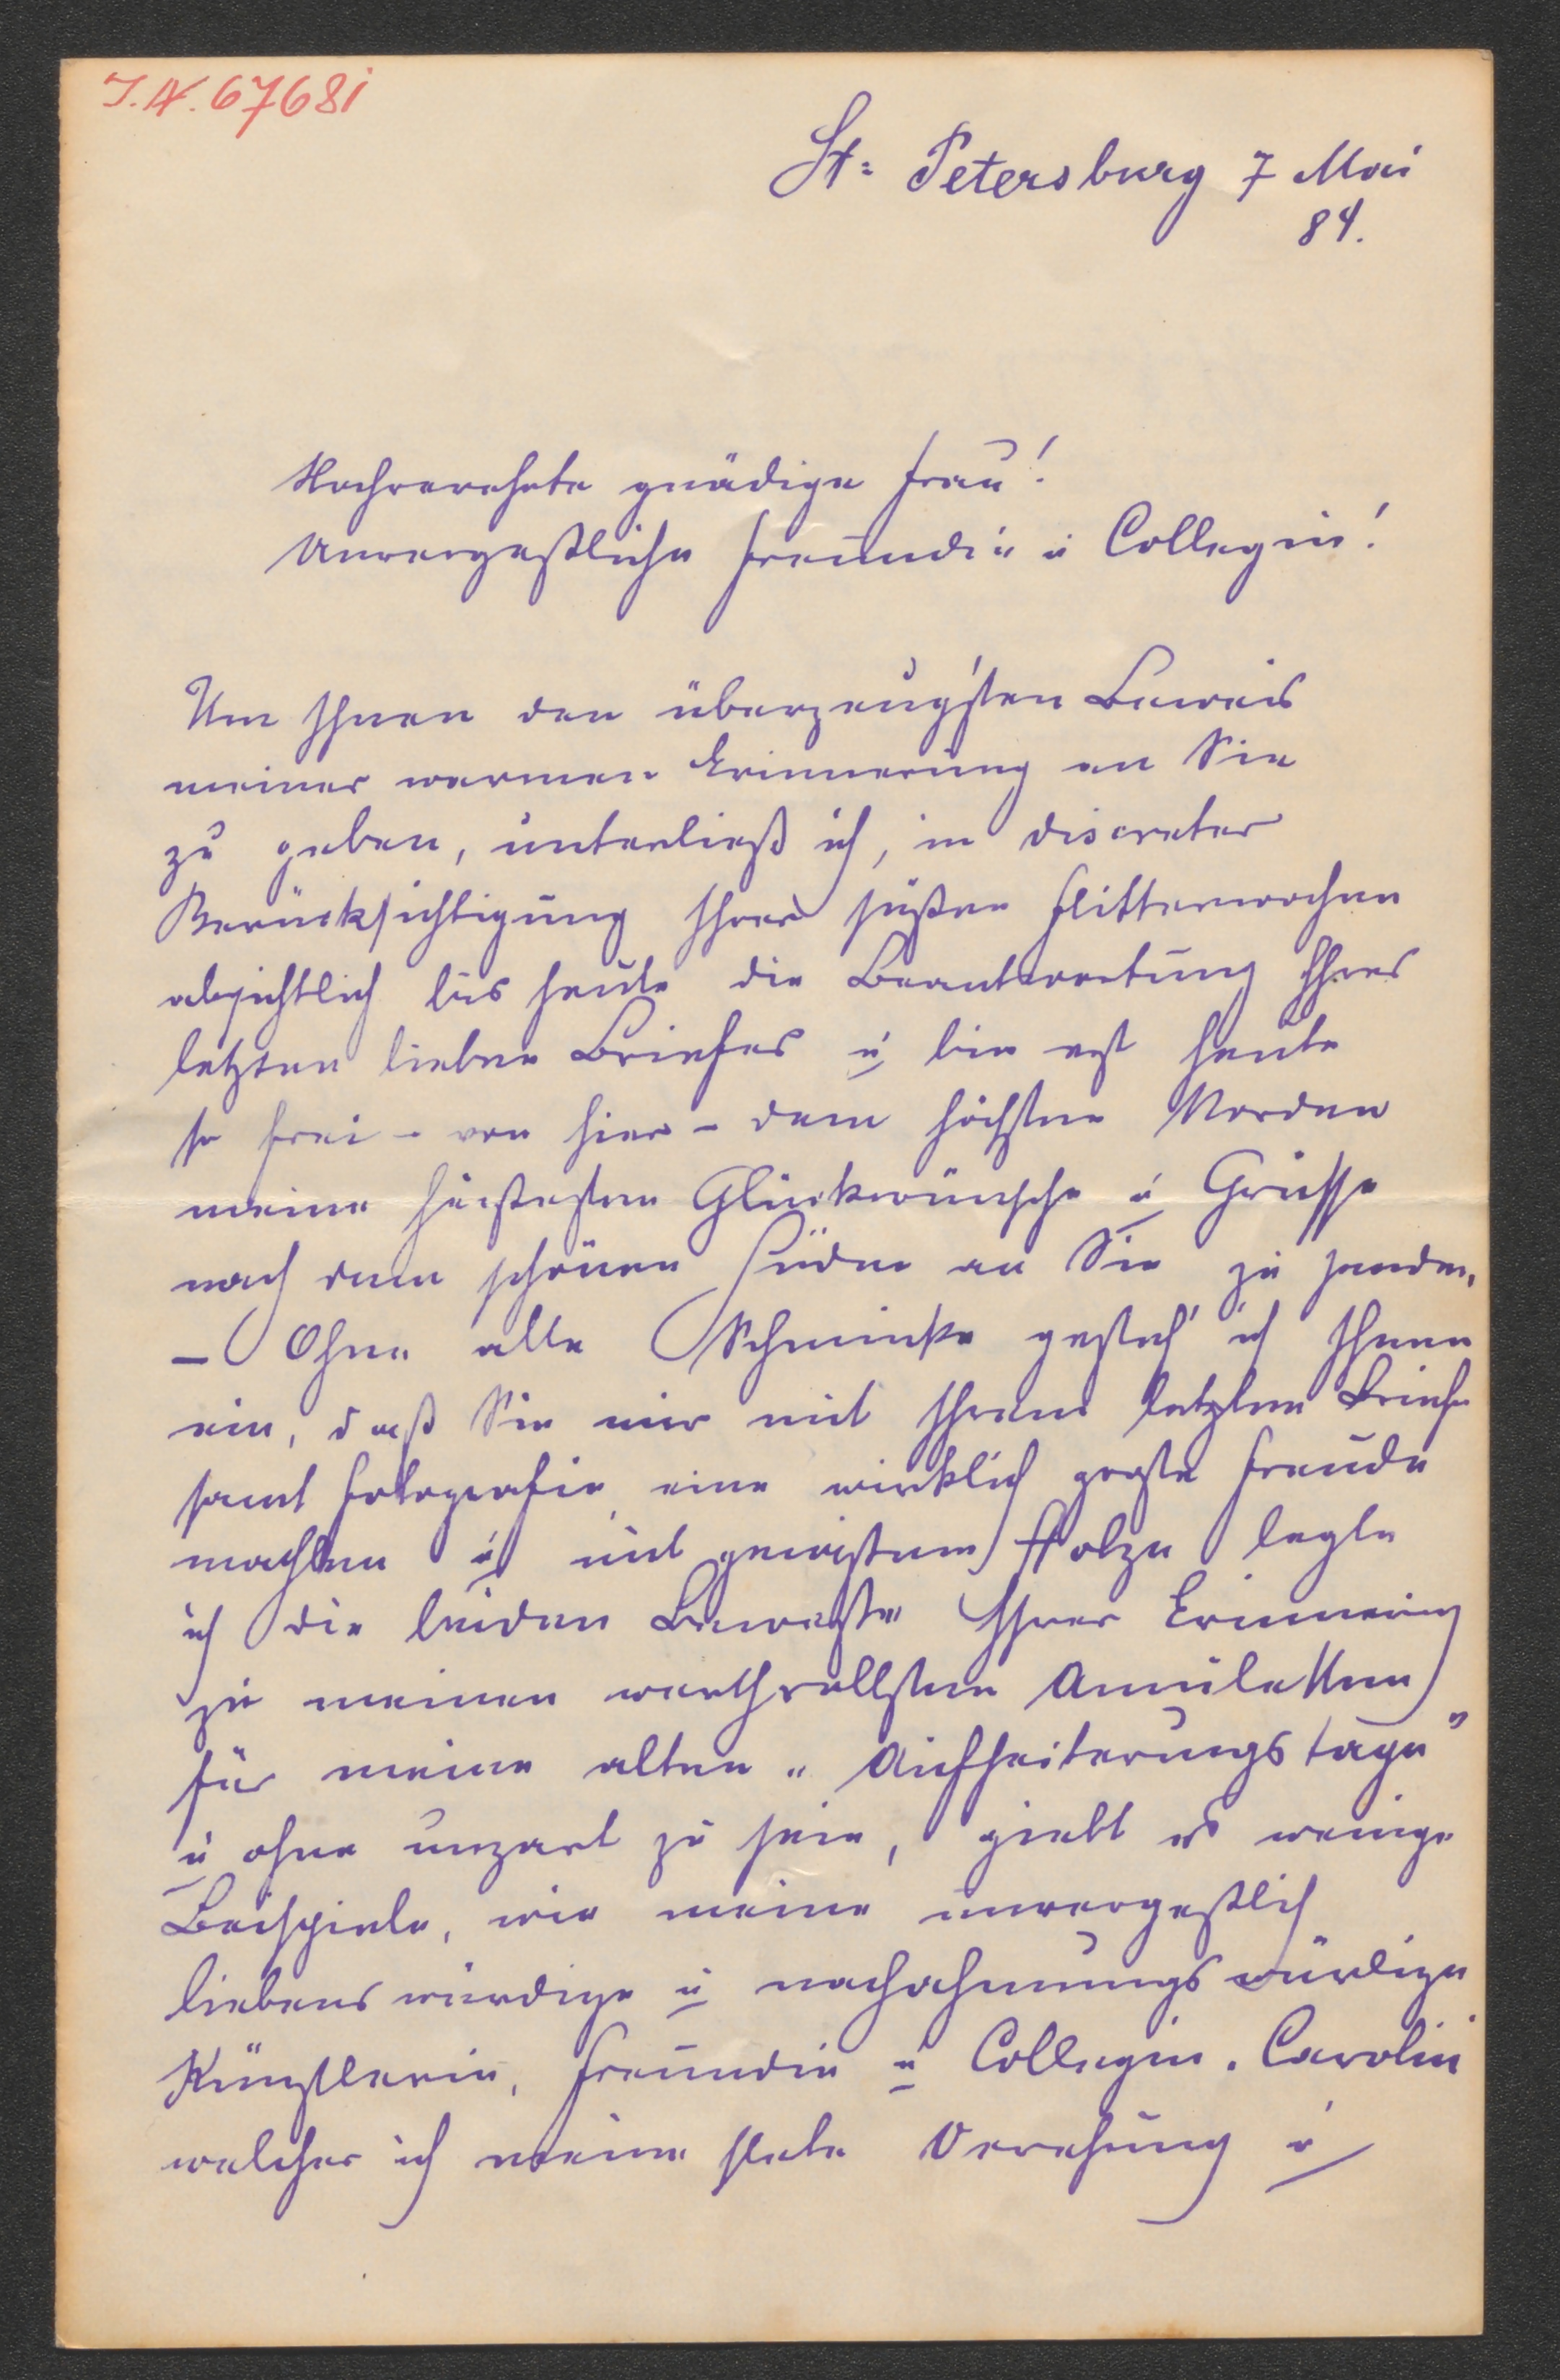 I.N. 67681
St: Petersburg 7 Mai
84.
Hochverehrte gnädige Frau!
Unvergeßliche Freundin u Collegin!
Um Ihnen den überzeugsten Beweis
meiner warmen Erinnerung an Sie
zu geben, unterließ ich, in discreter
Berücksichtigung Ihrer süßen Flitterwochen
absichtlich bis heute die Beantwortung Ihres
letzten lieben Briefes u bin erst heute
so frei – von hier – dem höchsten Norden
meine Glückwünsche u Grüsse
nach dem schönen Süden an Sie zu senden.
– Ohne alle Schminke gesteh' ich Ihnen
ein, daß Sie mir mit Ihrem letzten Briefe
samt Fotografie eine wirklich große Freude
machten u mit gewißem Stolze legte
ich die beiden Beweiße Ihrer Erinnerung
zu meinen werthvollsten Amuletten
für meine alten „Aufheiterungstage"
u ohne unzart zu sein, giebt es wenige
Beispiele, wie meine unvergeßlich
liebenswürdige u nachahmungswürdige
Künstlerin, Freundin u Collegin. Carolin
welcher ich meine stete Verehung u